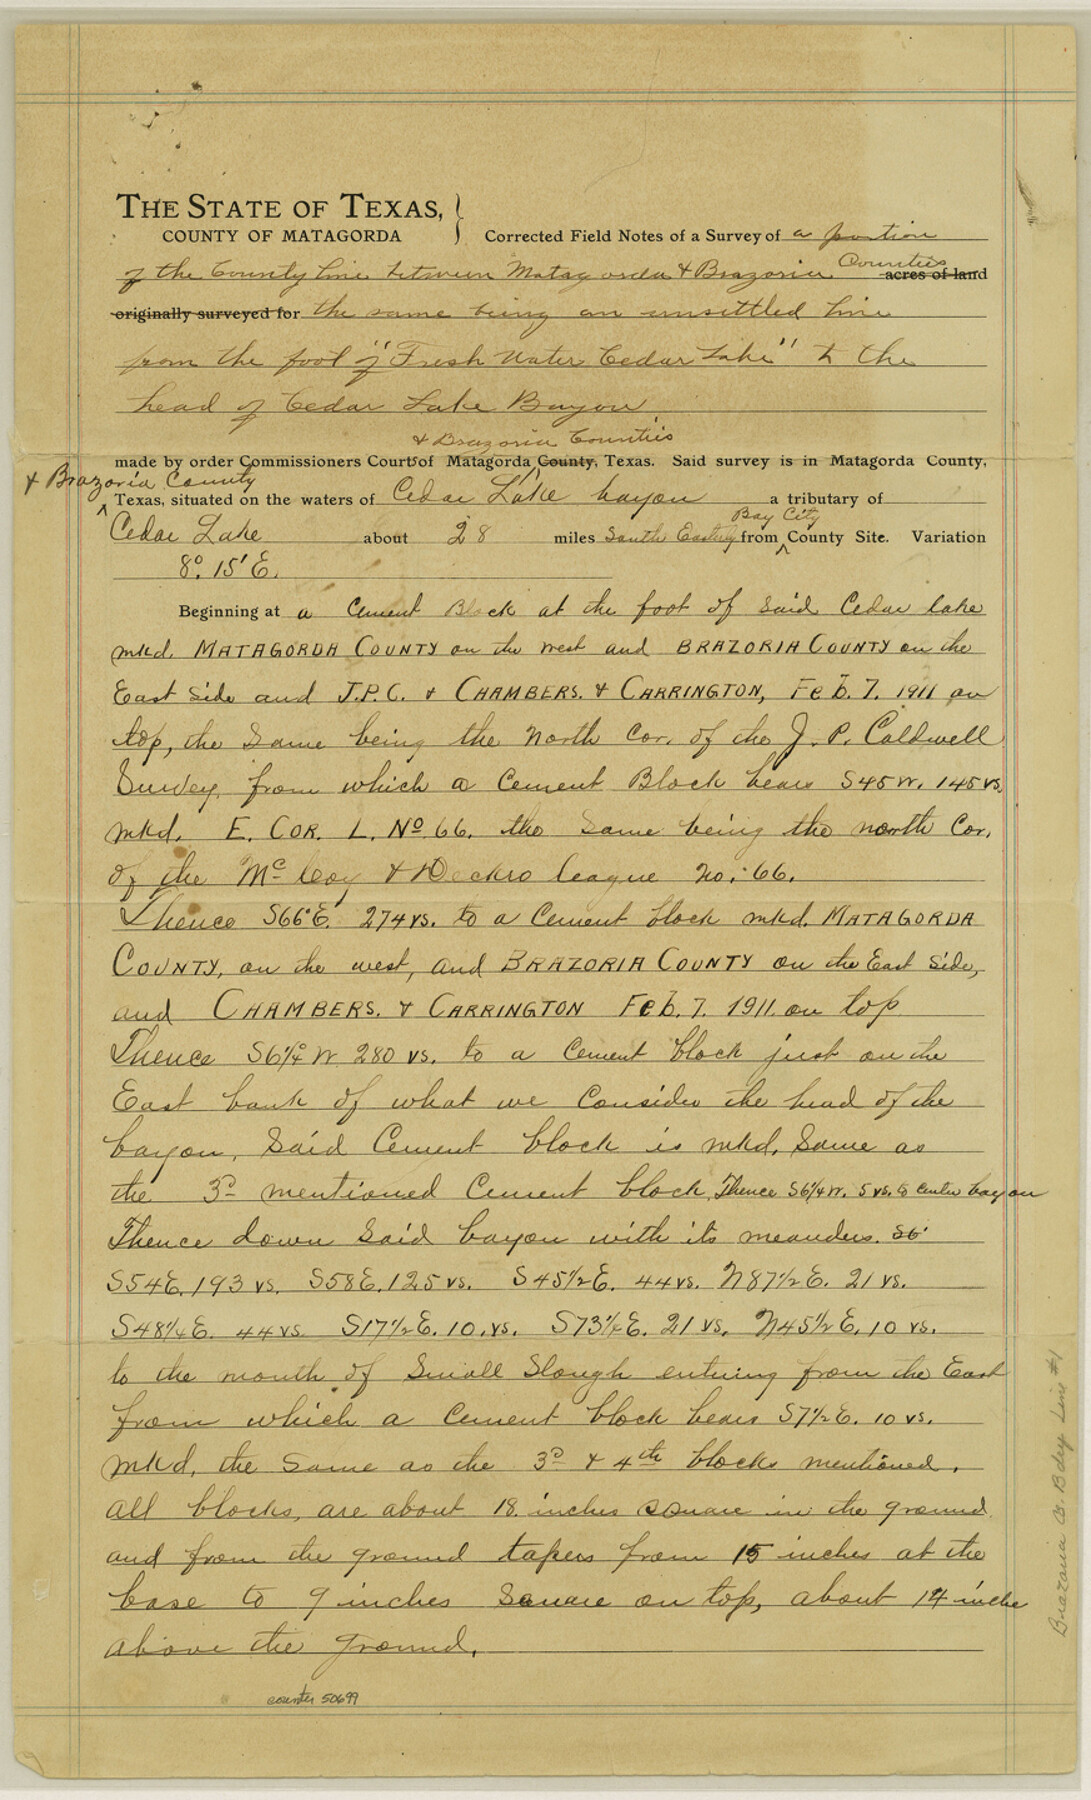 THE STATE OF TEXAS,
COUNTY OF MATAGORDA
Corrected Field Notes of a Survey of a portion
of the County line between Matagorda & Brazoria Counties acres of land
originally surveyed for the same being an unsettled line
from the foot of "Fresh Water Cedar Lake" to the
head of Cedar Lake Bayou.
& Brazoria Counties
made by order Commissioners Courts of Matagorda County, Texas. Said survey is in Matagorda County,
& Brazoria County
Texas, situated on the waters of Cedar Lake bayou a tributary of
Bay City
Cedar Lake about 28 miles South Easterly from County Site. Variation
8° 15' E.
Beginning at a Cement Block at the foot of Said Cedar lake
mkd. MATAGORDA COUNTY on the west and BRAZORIA COUNTY on the
East Side and J.P.C. & CHAMBERS. & CARRINGTON, Feb. 7. 1911 on
top, the Same being the North Cor. of the J. P. Caldwell
Survey, from which a Cement Block bears S45W. 145 vs.
mkd. E. COR. L. No. 66. the Same being the north Cor.
of the McCoy & Deckro league no. 66.
Thence S66°E. 274 vs. to a Cement block mkd. MATAGORDA
COUNTY, on the west, and BRAZORIA COUNTY on the East Side,
and CHAMBERS. & CARRINGTON Feb. 7. 1911. on top
Thence S6¼°W 280 vs. to a Cement block just on the
East bank of what we Consider the head of the
bayou, Said Cement block is mkd. Same as
the 3d mentioned Cement block, Thence S6¼W. 5 vs. to center bayou
Thence down Said bayou with its meanders. S6
S54E. 193 vs. S58E. 125 vs. S45½E. 44 vs. N87½E. 21 vs.
S48¼E. 44 vs. S17½E. 10. vs. S73¼E. 21 vs. N45½E. 10 vs.
to the mouth of Small Slough entering from the East
from which a Cement block bears S7½E. 10 vs.
mkd, the Same as the 3d & 4th blocks mentioned.
All blocks, are about 18 inches square in the ground
and from the ground tapers from 15 inches at the
base to 9 inches Square on top, about 14 inche
above the ground.
counter 50699
Brazoria Co. Bdry Line #1